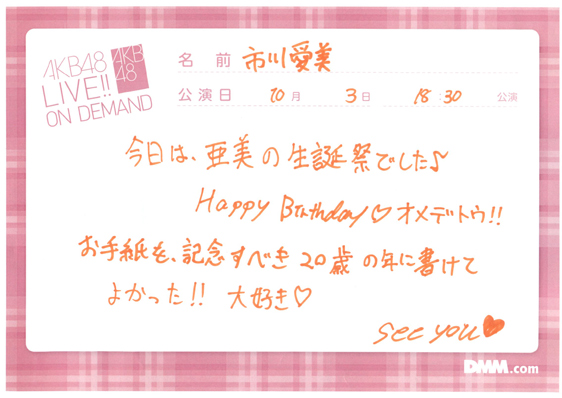 AKB48
LIVE!!
ON DEMAND
AKB
48
名前 市川愛美
公演日 10月 3日 18:30 公演
今日は、亜美の生誕祭でした♪
Happy Birthday♡オメデトウ!!
お手紙を、記念すべき20歳の年に書けて
よかった!! 大好き♡
see you♥
DMM.com